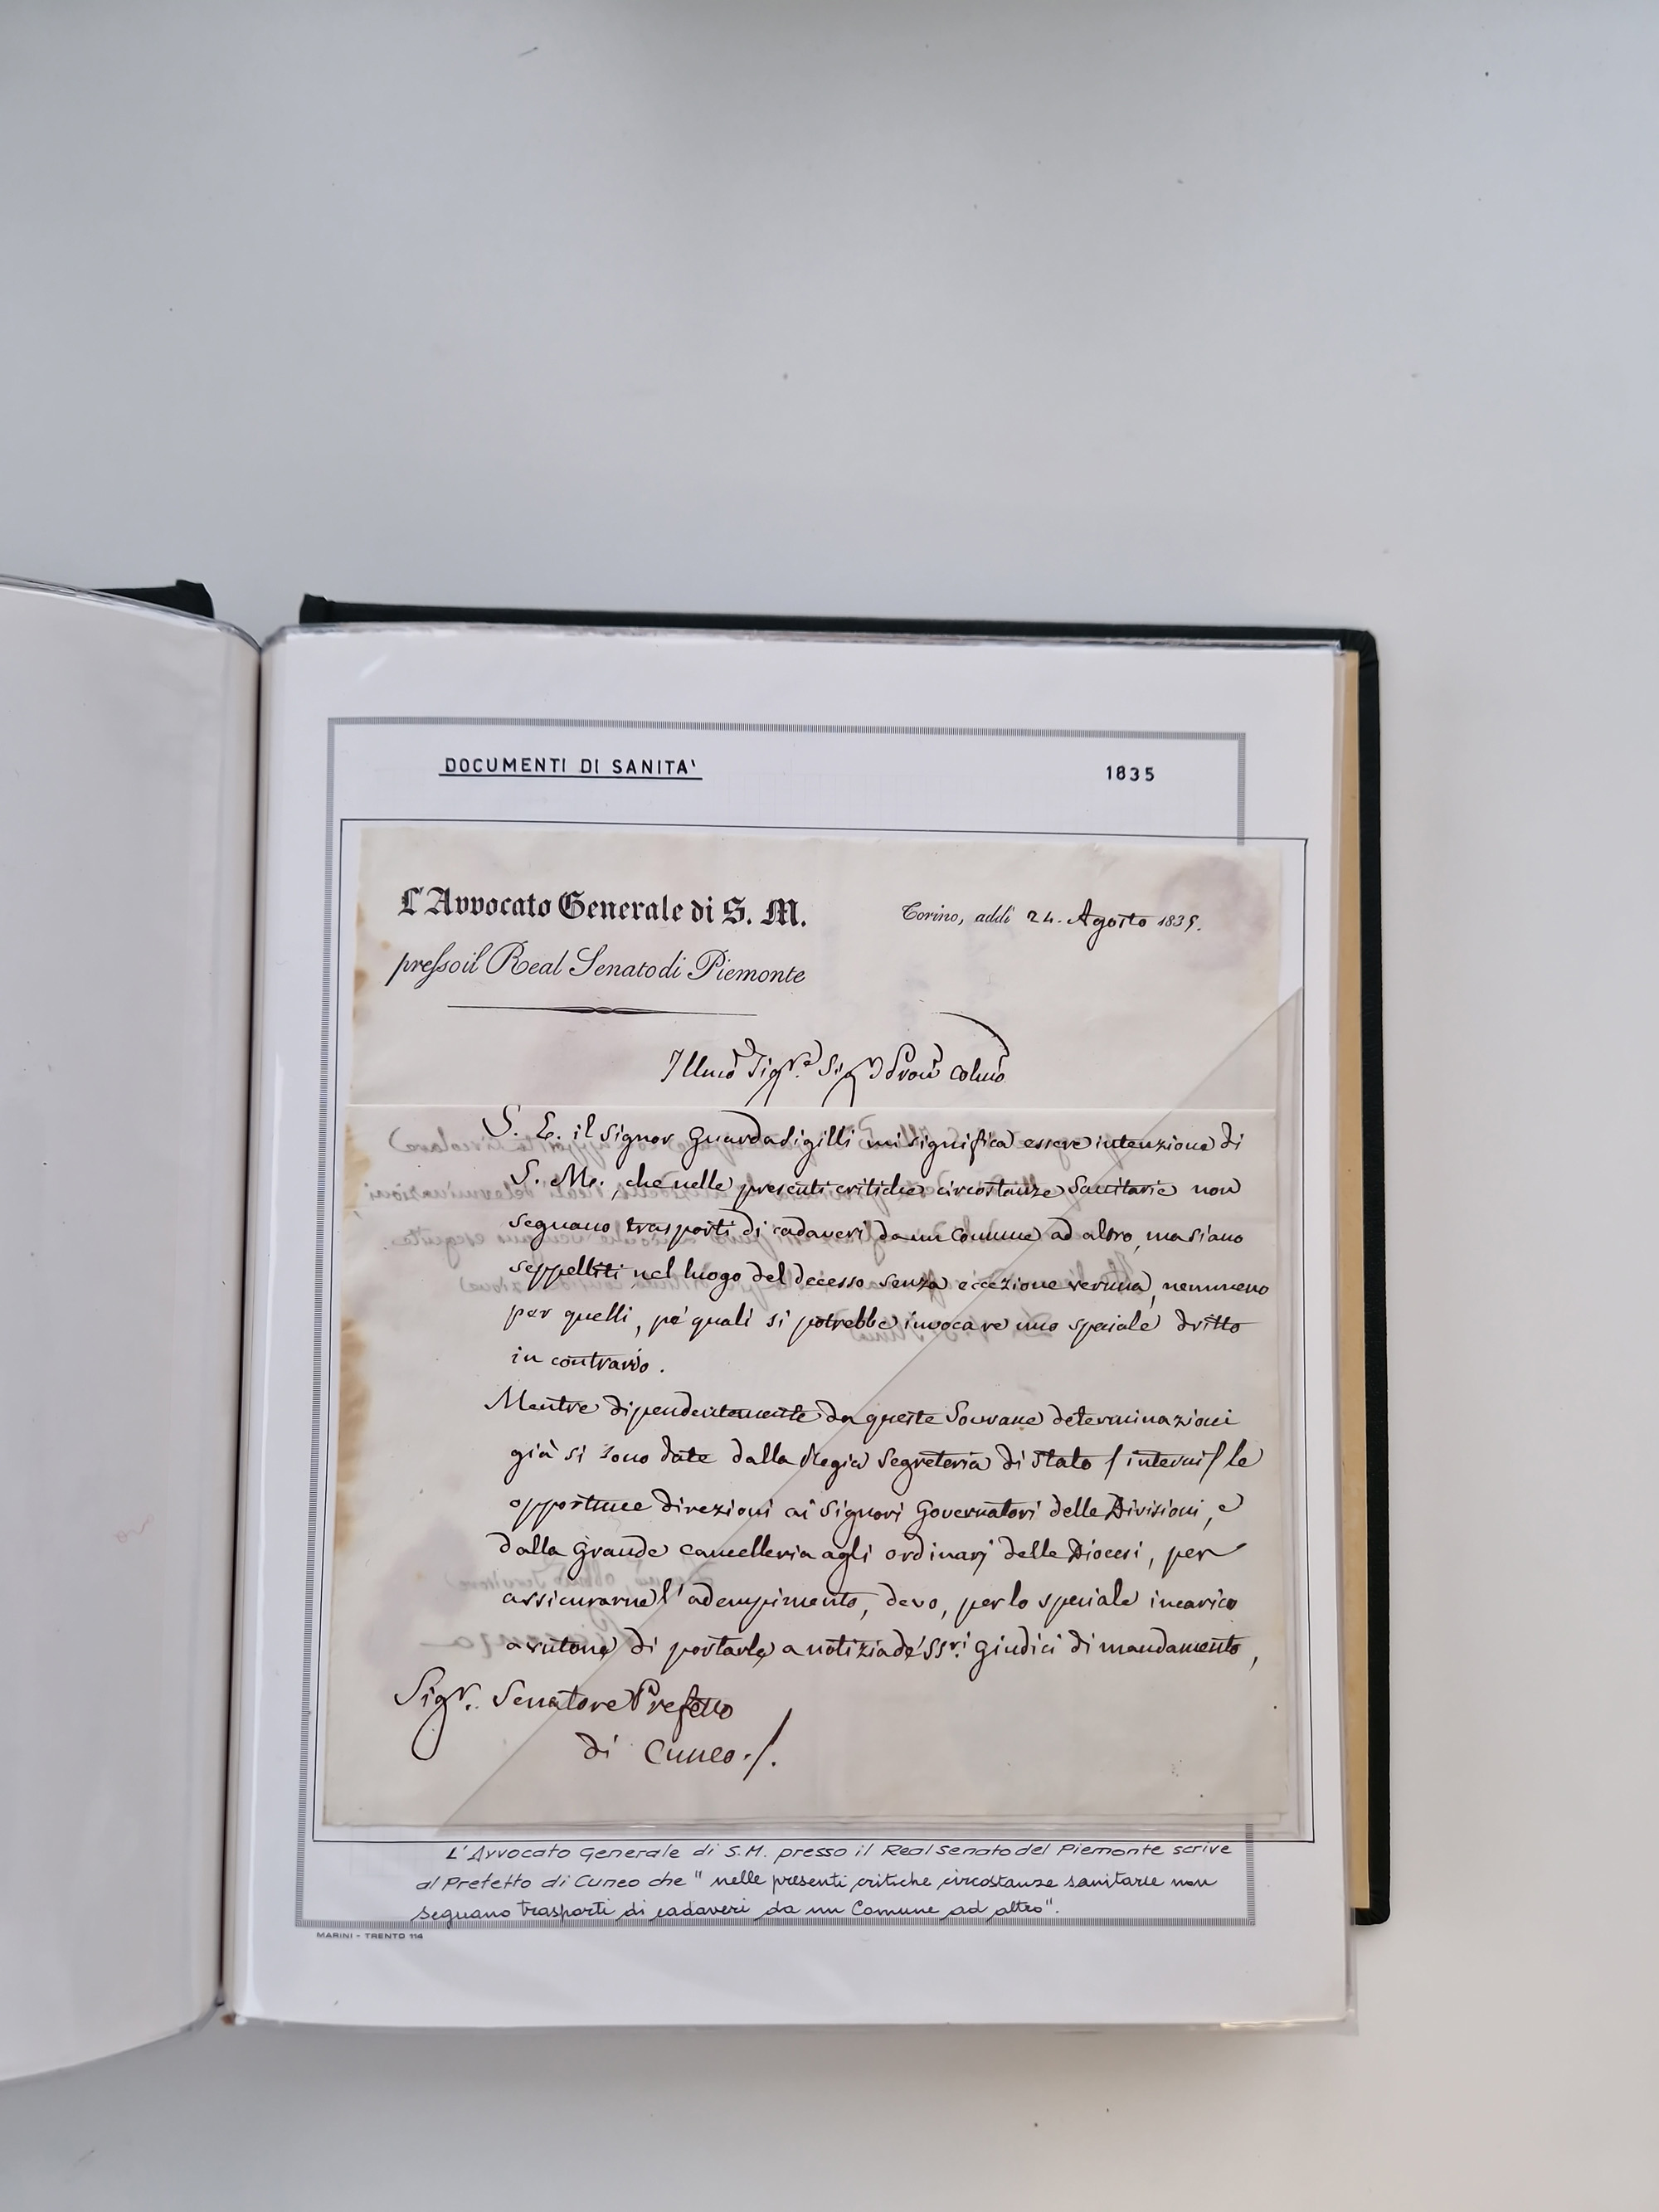 DOCUMENTI DI SANITA'
1835
L'Avvocato Generale di S. M.
presso il Real Senato di Piemonte
Torino, addì 24. Agosto 1835.
Illmo Sigr. Sigr Pron Colmo
S. E. il Signor Guardasigilli mi significa essere intenzione di
S. M., che nelle presenti critiche circostanze Sanitarie non
seguano trasporti di cadaveri da un Comune ad altro, ma siano
seppelliti nel luogo del decesso senza eccezione veruna, nemmeno
per quelli, pe' quali si potrebbe invocare uno speciale dritto
in contrario.
Mentre dipendentemente da queste Sovrane determinazioni
già si sono date dalla Regia Segreteria di Stato / interni / le
opportune direzioni ai Signori Governatori delle Divisioni, e
dalla Grande Cancelleria agli ordinarj delle Diocesi, per
assicurarne l'adempimento, devo, per lo speciale incarico
avutone di portarle a notizia de' SSri Giudici di mandamento,
Sigr. Senatore Prefetto
di Cuneo ./.
L'Avvocato Generale di S.M. presso il Real Senato del Piemonte scrive
al Prefetto di Cuneo che "nelle presenti critiche circostanze sanitarie non
seguano trasporti di cadaveri da un Comune ad altro".
MARINI - TRENTO 114